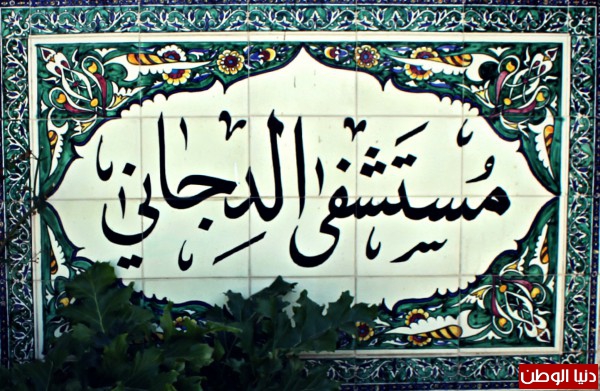 مُستَشفى الدِجاني
دنيا الوطن